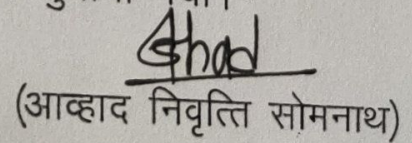 (आव्हाद निवृत्ति सोमनाथ)